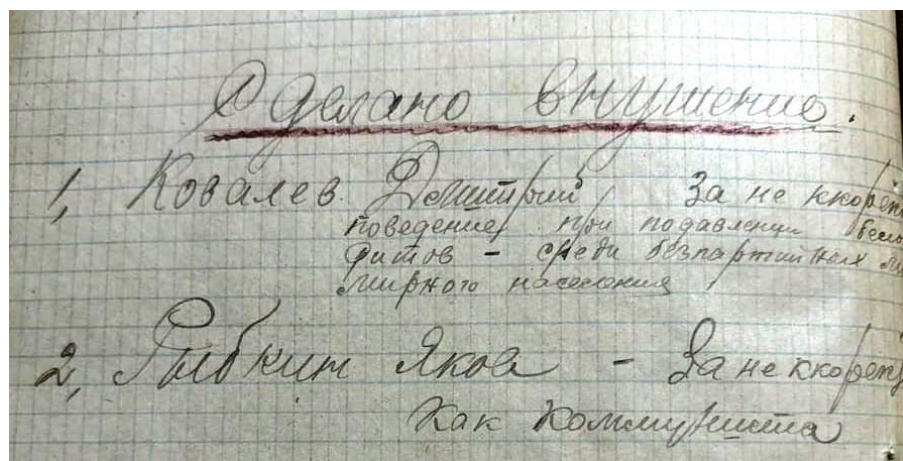 Сделано внушение.
1, Ковалев Дмитрий, За не ккорект
поведение, при подавлении
фитов - среди безпартийных
мирного населения
2, Рыбкин Яков - За не ккорект
как коммуниста